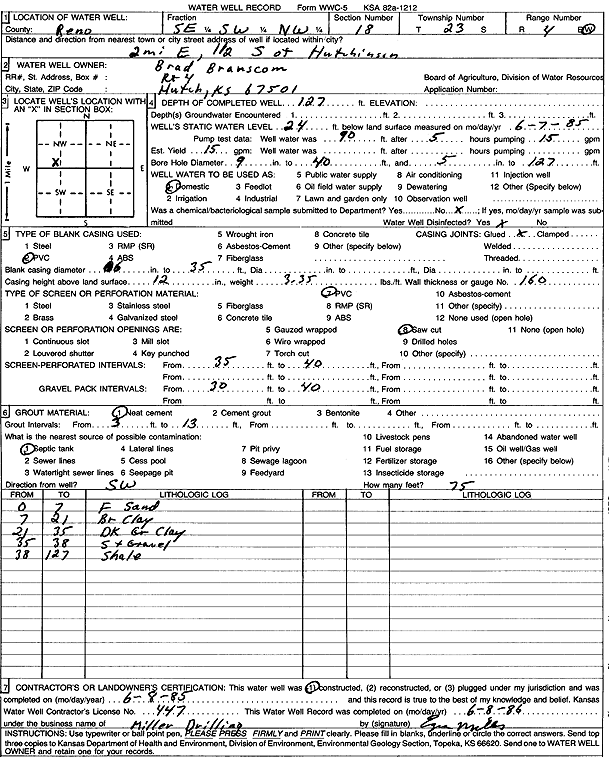 WATER WELL RECORD Form WWC-5 KSA 82a-1212
1 LOCATION OF WATER WELL: Fraction Section Number Township Number Range Number
County: Reno SE ¼ SW ¼ NW ¼ 18 T 23 S R 4 E/W
Distance and direction from nearest town or city street address of well if located within city?
2 mi E, 1 1/2 S of Hutchinson
2 WATER WELL OWNER: Brad Branscom
RR#, St. Address, Box # : Rt 4 Board of Agriculture, Division of Water Resources
City, State, ZIP Code : Hutch, KS 67501 Application Number:
3 LOCATE WELL'S LOCATION WITH AN "X" IN SECTION BOX:
N
NW NE
W X E
SW SE
S
1 Mile
4 DEPTH OF COMPLETED WELL 127 ft. ELEVATION:
Depth(s) Groundwater Encountered 1. ft. 2. ft. 3. ft.
WELL'S STATIC WATER LEVEL 24 ft. below land surface measured on mo/day/yr 6-7-85
Pump test data: Well water was 90 ft. after 5 hours pumping 15 gpm
Est. Yield 15 gpm: Well water was ft. after hours pumping gpm
Bore Hole Diameter 9 in. to 40 ft., and 5 in. to 127 ft.
WELL WATER TO BE USED AS: 5 Public water supply 8 Air conditioning 11 Injection well
1 Domestic 3 Feedlot 6 Oil field water supply 9 Dewatering 12 Other (Specify below)
2 Irrigation 4 Industrial 7 Lawn and garden only 10 Observation well
Was a chemical/bacteriological sample submitted to Department? Yes No X ; If yes, mo/day/yr sample was sub
mitted Water Well Disinfected? Yes X No
5 TYPE OF BLANK CASING USED: 5 Wrought iron 8 Concrete tile CASING JOINTS: Glued X Clamped
1 Steel 3 RMP (SR) 6 Asbestos-Cement 9 Other (specify below) Welded
2 PVC 4 ABS 7 Fiberglass Threaded
Blank casing diameter 6 in. to 35 ft., Dia in. to ft., Dia in. to ft.
Casing height above land surface 12 in., weight 3.35 lbs./ft. Wall thickness or gauge No. 160
TYPE OF SCREEN OR PERFORATION MATERIAL: 7 PVC 10 Asbestos-cement
1 Steel 3 Stainless steel 5 Fiberglass 8 RMP (SR) 11 Other (specify)
2 Brass 4 Galvanized steel 6 Concrete tile 9 ABS 12 None used (open hole)
SCREEN OR PERFORATION OPENINGS ARE: 5 Gauzed wrapped 8 Saw cut 11 None (open hole)
1 Continuous slot 3 Mill slot 6 Wire wrapped 9 Drilled holes
2 Louvered shutter 4 Key punched 7 Torch cut 10 Other (specify)
SCREEN-PERFORATED INTERVALS: From 35 ft. to 40 ft., From ft. to ft.
From ft. to ft., From ft. to ft.
GRAVEL PACK INTERVALS: From 20 ft. to 40 ft., From ft. to ft.
From ft. to ft., From ft. to ft.
6 GROUT MATERIAL: 1 Neat cement 2 Cement grout 3 Bentonite 4 Other
Grout Intervals: From 3 ft. to 13 ft., From ft. to ft., From ft. to ft.
What is the nearest source of possible contamination: 10 Livestock pens 14 Abandoned water well
1 Septic tank 4 Lateral lines 7 Pit privy 11 Fuel storage 15 Oil well/Gas well
2 Sewer lines 5 Cess pool 8 Sewage lagoon 12 Fertilizer storage 16 Other (specify below)
3 Watertight sewer lines 6 Seepage pit 9 Feedyard 13 Insecticide storage
Direction from well? SW How many feet? 75
FROM TO LITHOLOGIC LOG FROM TO LITHOLOGIC LOG
0 7 F Sand
7 21 Br Clay
21 35 DK Gr Clay
35 38 S + Gravel
38 127 Shale
7 CONTRACTOR'S OR LANDOWNER'S CERTIFICATION: This water well was (1) constructed, (2) reconstructed, or (3) plugged under my jurisdiction and was
completed on (mo/day/year) 6-8-85 and this record is true to the best of my knowledge and belief. Kansas
Water Well Contractor's License No. 447 This Water Well Record was completed on (mo/day/yr) 6-8-86
under the business name of Miller Drilling by (signature)
INSTRUCTIONS: Use typewriter or ball point pen, PLEASE PRESS FIRMLY and PRINT clearly. Please fill in blanks, underline or circle the correct answers. Send top
three copies to Kansas Department of Health and Environment, Division of Environment, Environmental Geology Section, Topeka, KS 66620. Send one to WATER WELL
OWNER and retain one for your records.